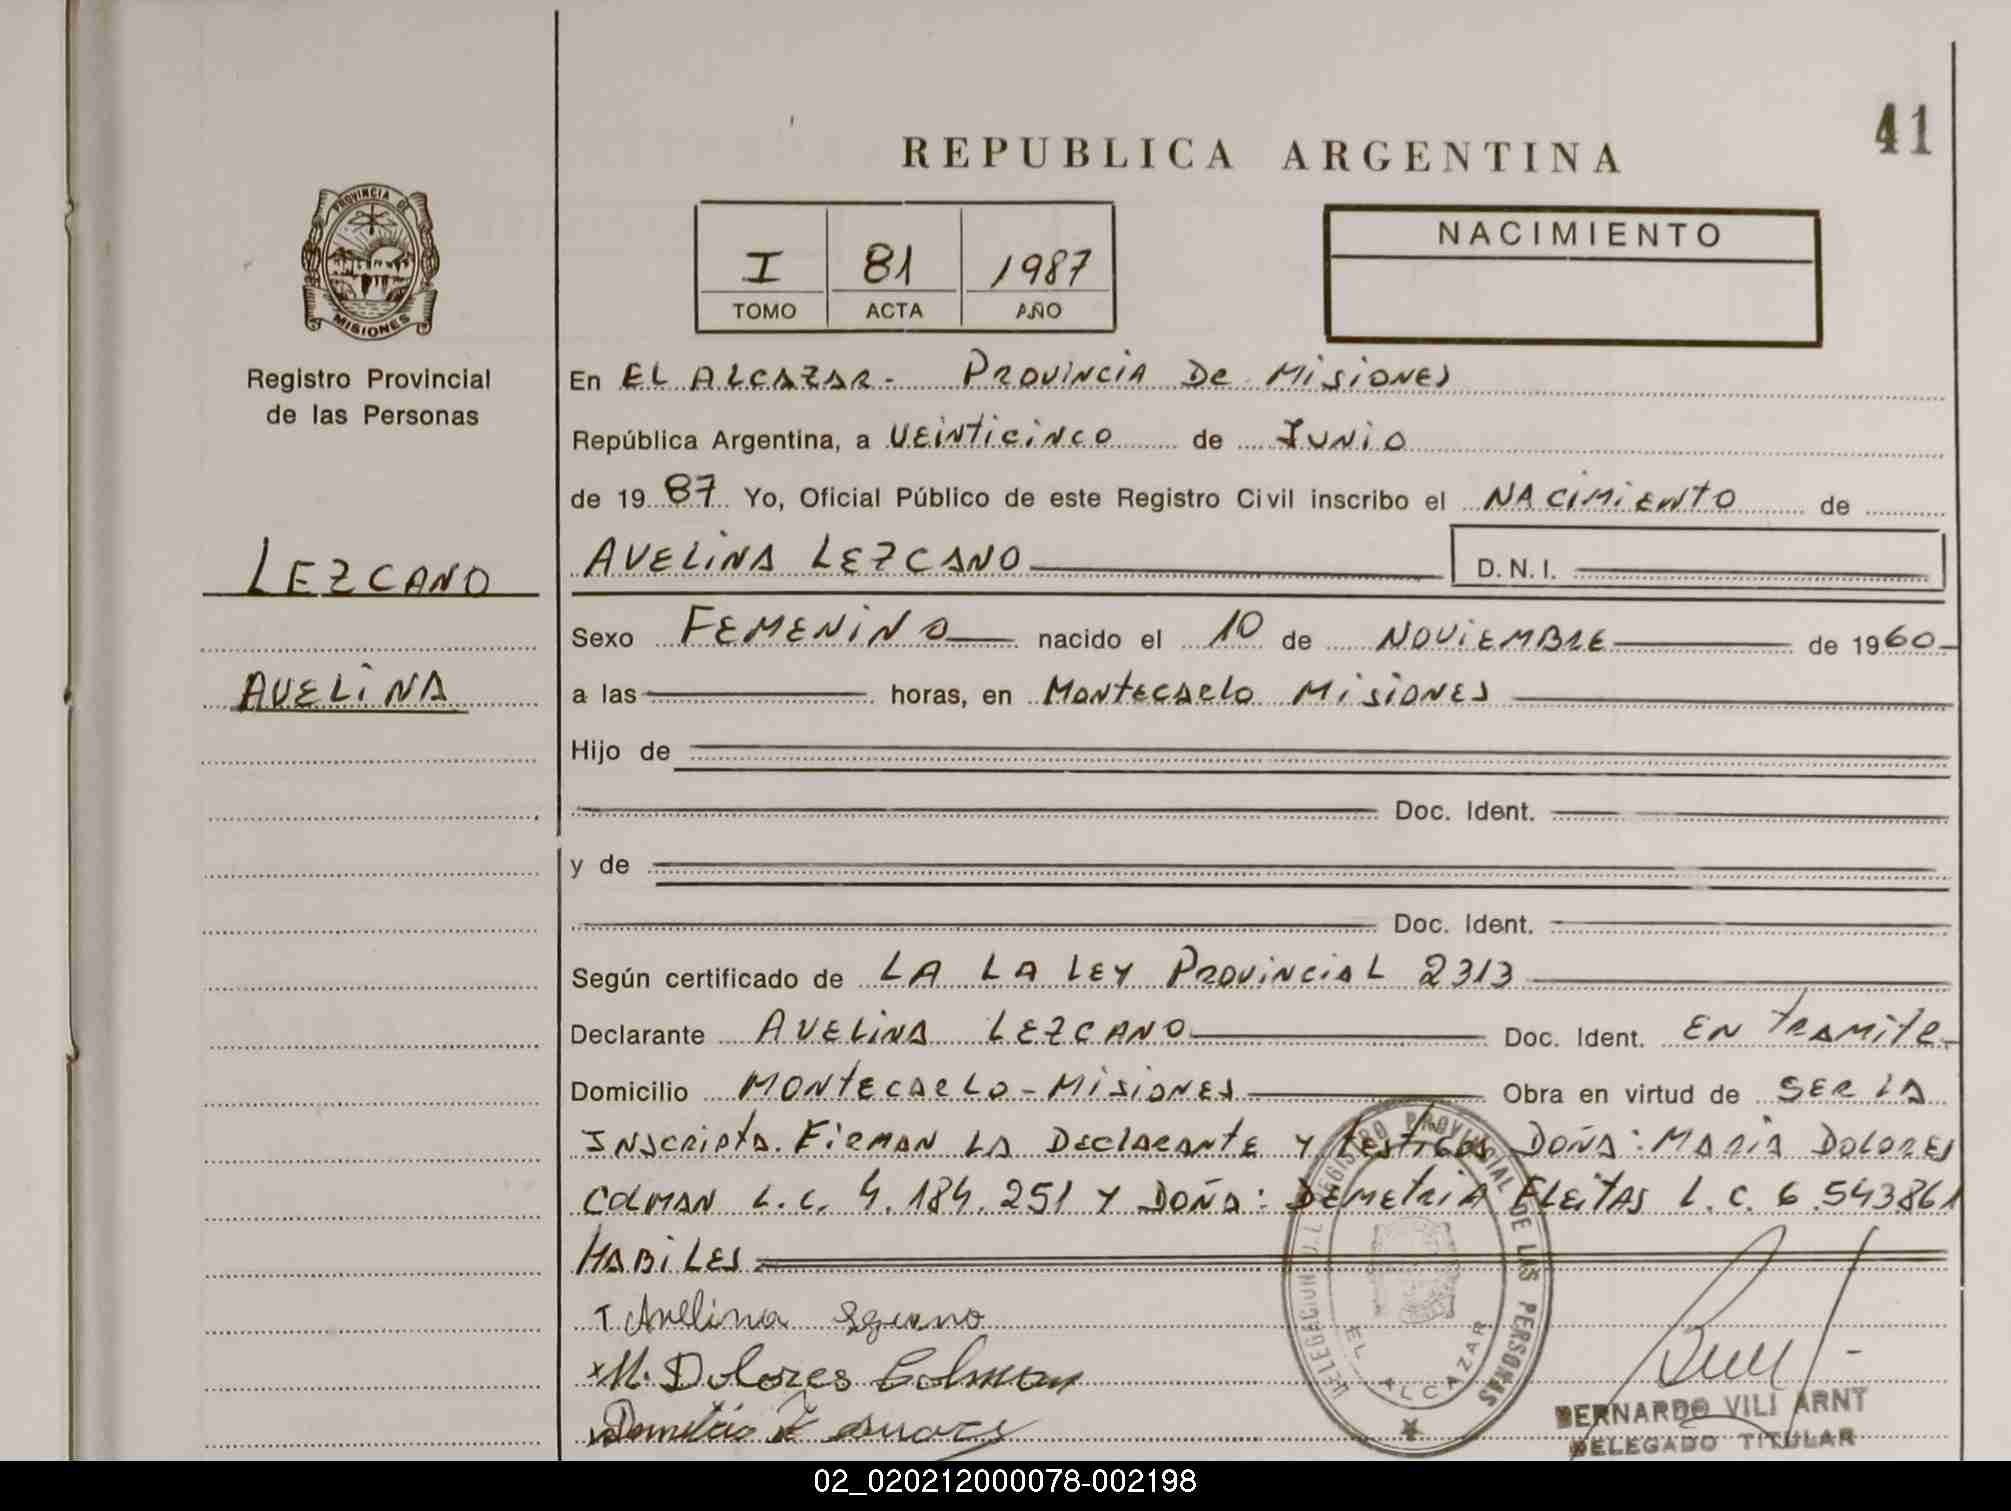 41
REPUBLICA ARGENTINA
PROVINCIA DE
MISIONES
Registro Provincial
de las Personas
I 81 1987
TOMO ACTA AÑO
NACIMIENTO
LEZCANO
AVELINA
En EL ALCAZAR - PROVINCIA De MISIONES
República Argentina, a VEINTICINCO de JUNIO
de 19 87 Yo, Oficial Público de este Registro Civil inscribo el NACIMIENTO de
AVELINA LEZCANO D.N.I.
Sexo FEMENINO nacido el 10 de NOVIEMBRE de 1960
a las horas, en MONTECARLO MISIONES
Hijo de
Doc. Ident.
y de
Doc. Ident.
Según certificado de LA LA LEY PROVINCIAL 2313
Declarante AVELINA LEZCANO Doc. Ident. EN TRAMITE.
Domicilio MONTECARLO - MISIONES Obra en virtud de SER LA
INSCRIPTA. FIRMAN LA DECLARANTE Y TESTIGOS DOÑA: MARIA DOLORES
COLMAN L.C. 4.184.251 Y DOÑA: DEMETRIA FLEITAS L.C. 6.543861
HABILES
Avelina
M. Dolores Colman
REGISTRO PROVINCIAL DE LAS PERSONAS
EL ALCAZAR
BERNARDO VILI ARNT
DELEGADO TITULAR
02_020212000078-002198